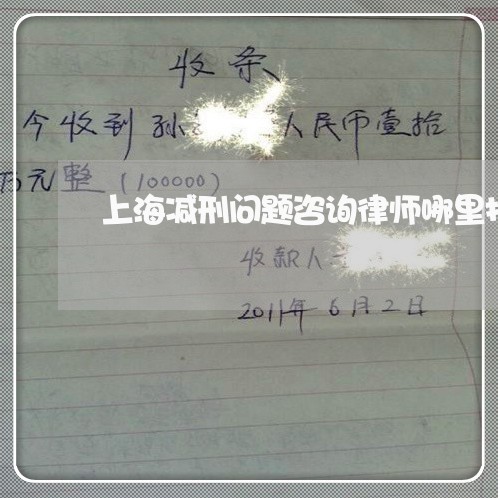 收条
今收到孙人民币壹拾
万元整(100000)
上海减刑问题咨询律师哪里
收款人
2011年6月2日